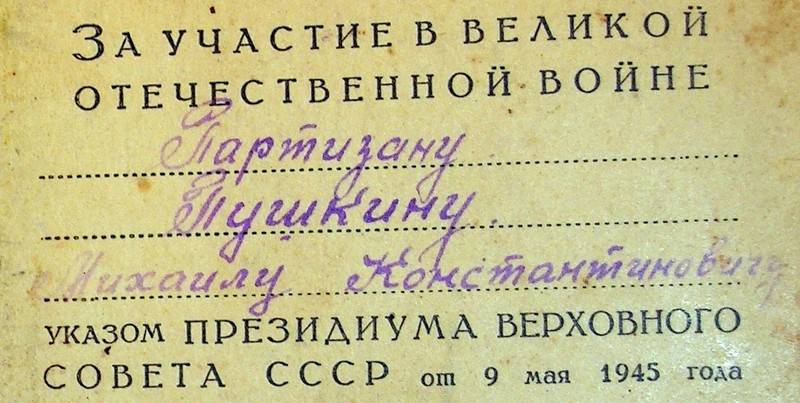 ЗА УЧАСТИЕ В ВЕЛИКОЙ
ОТЕЧЕСТВЕННОЙ ВОЙНЕ
Партизану
Пушкину.
Михаилу Константиновичу
УКАЗОМ ПРЕЗИДИУМА ВЕРХОВНОГО
СОВЕТА СССР от 9 мая 1945 года